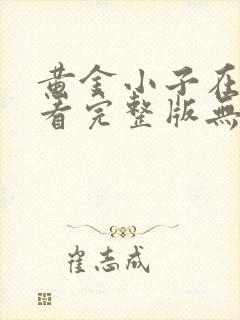 黄金小子在
看完整版無
崔志成